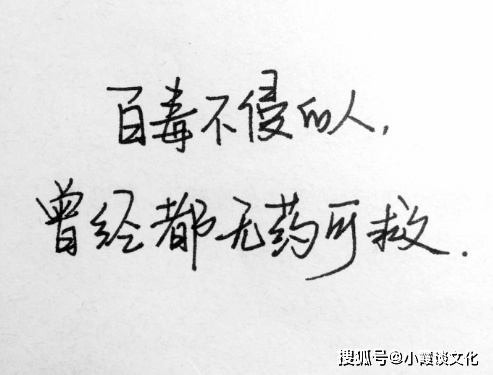 百毒不侵的人,
曾经都无药可救.
搜狐号@小霞谈文化